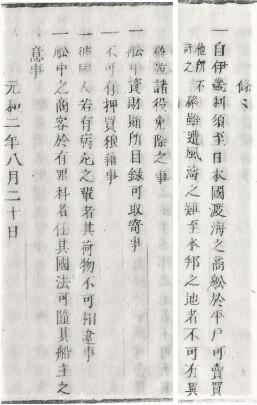 條々
一自伊義利須至日本國渡海之商舩於平戸可賣買
他所不
許之
縱雖遭風濤之難至本邦之地者不可有異
諸役免除之事
一舩中資財所目録可取寄事
一不可有押買狼藉事
一彼國人若有病死之輩者其荷物不可相違事
一舩中之商客於有罪科者任其國法可隨其船主之
意事
元和二年八月二十日